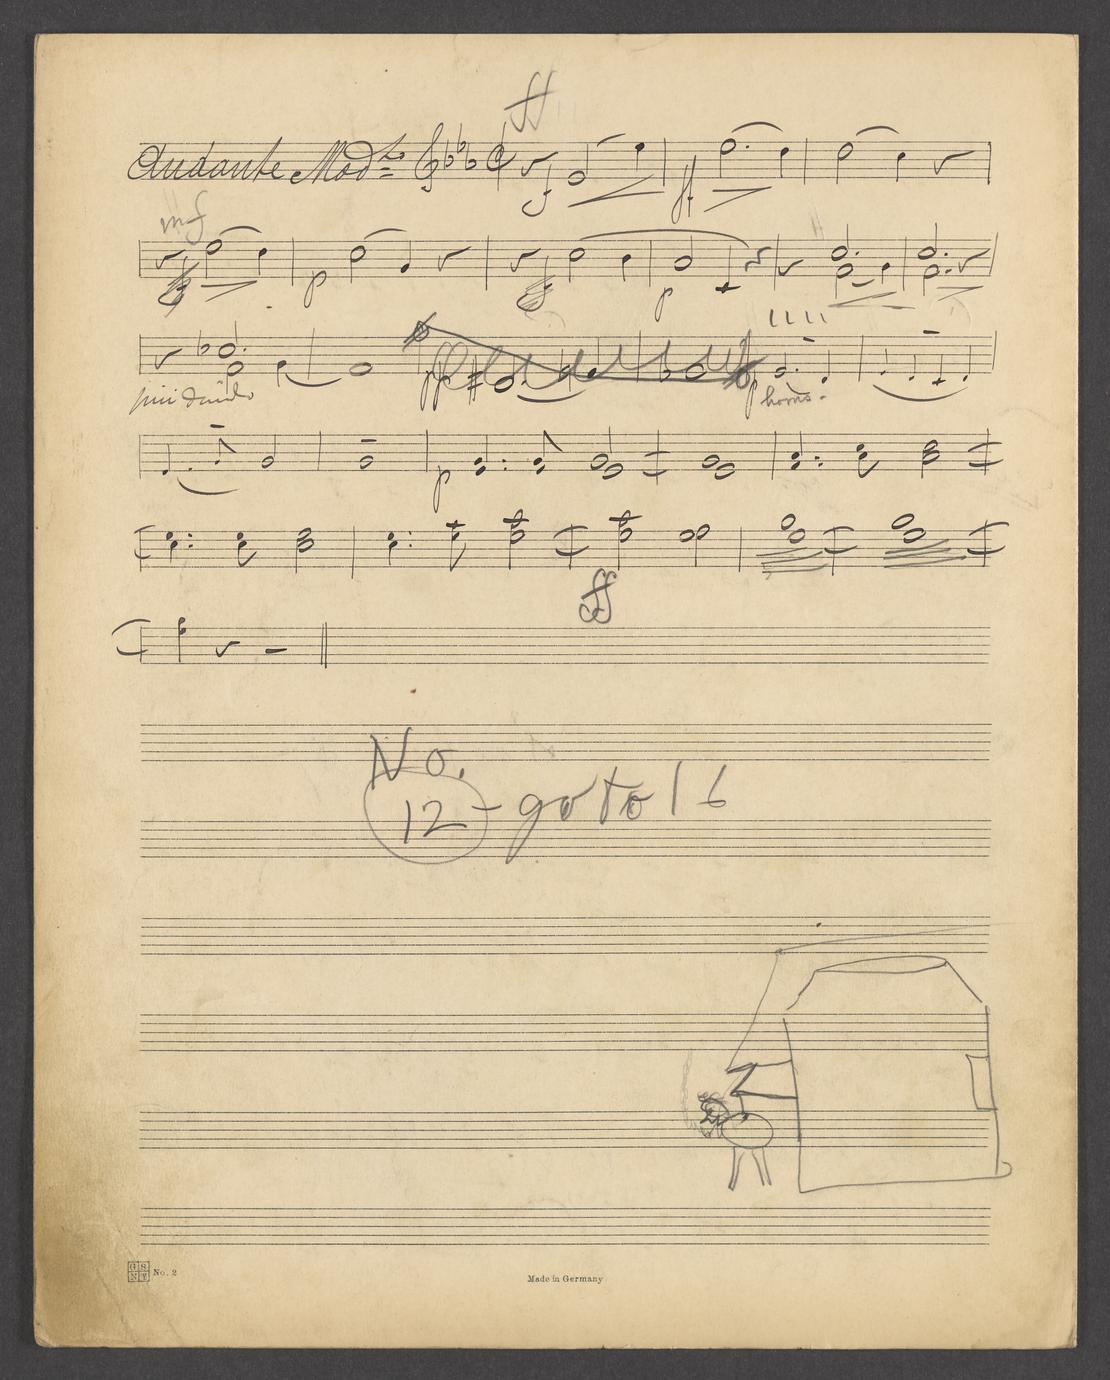 ff
Andante Modto f ff
mf
p p
pp p horns.
p
ff
No.
12 - go to 16
G S N Y No. 2
Made in Germany